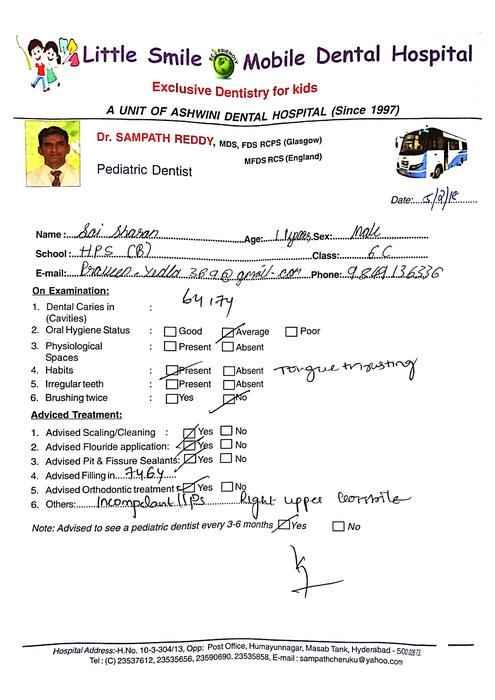 Little Smile Mobile Dental Hospital
Exclusive Dentistry for kids
A UNIT OF ASHWINI DENTAL HOSPITAL (Since 1997)
Dr. SAMPATH REDDY, MDS, FDS RCPS (Glasgow)
MFDS RCS (England)
Pediatric Dentist
Date:
Name: Sai Sharan Age: 11 years Sex: Male
School: HPS (B) Class: 6 C
E-mail: Phone: 9849136336
On Examination:
1. Dental Caries in (Cavities) : 64, 74
2. Oral Hygiene Status : Good Average Poor
3. Physiological Spaces : Present Absent
4. Habits : Present Absent Tongue thrusting
5. Irregular teeth : Present Absent
6. Brushing twice : Yes No
Adviced Treatment:
1. Advised Scaling/Cleaning : Yes No
2. Advised Flouride application: Yes No
3. Advised Pit & Fissure Sealants: Yes No
4. Advised Filling in... 74,64
5. Advised Orthodontic treatment : Yes No
6. Others: Right upper
Note: Advised to see a pediatric dentist every 3-6 months Yes No
Hospital Address:-H.No. 10-3-304/13, Opp: Post Office, Humayunnagar, Masab Tank, Hyderabad -
Tel : (C) 23537612, 23535656, 23590690. 23535858, E-mail : sampathcheruku@yahoo.com